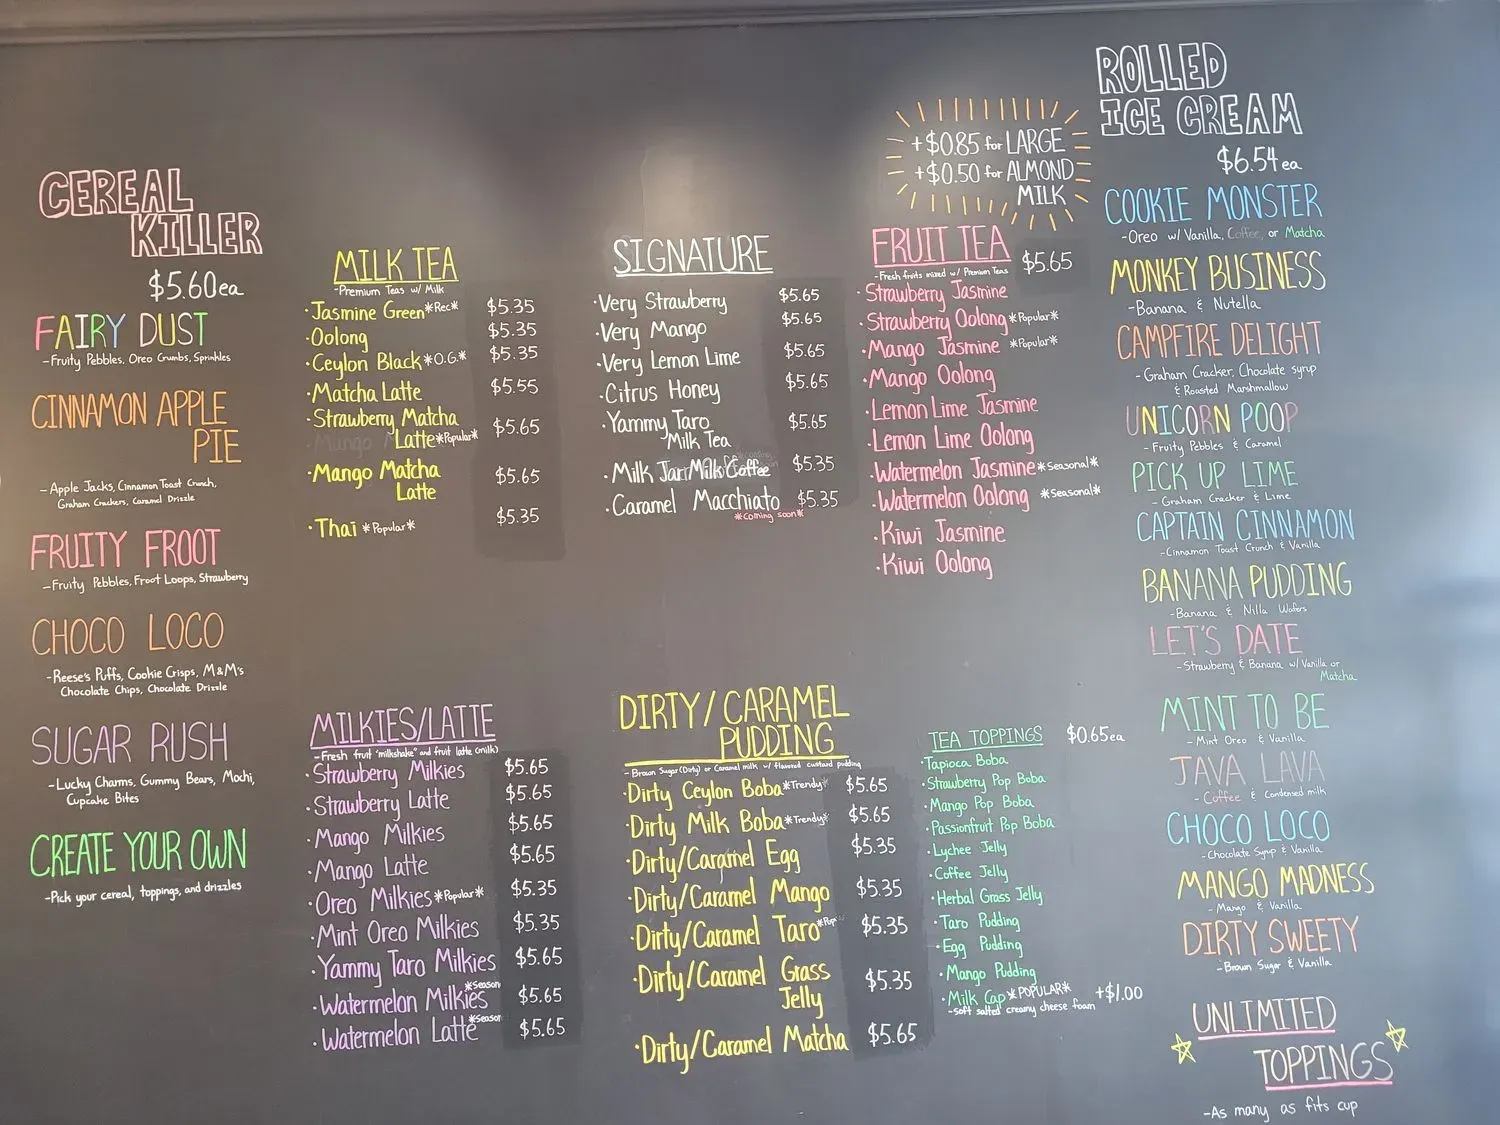 CEREAL
KILLER
$5.60ea
FAIRY DUST
-Fruity Pebbles, Oreo Crumbs, Sprinkles
CINNAMON APPLE
PIE
-Apple Jacks, Cinnamon Toast Crunch,
Graham Crackers, Caramel Drizzle
FRUITY FROOT
-Fruity Pebbles, Froot Loops, Strawberry
CHOCO LOCO
-Reese's Puffs, Cookie Crisps, M&M's
Chocolate Chips, Chocolate Drizzle
SUGAR RUSH
-Lucky Charms, Gummy Bears, Mochi,
Cupcake Bites
CREATE YOUR OWN
-Pick your cereal, toppings, and drizzles
MILK TEA
-Premium Teas w/ Milk
·Jasmine Green *Rec* $5.35
·Oolong $5.35
·Ceylon Black *O.G.* $5.35
·Matcha Latte $5.55
·Strawberry Matcha
Latte *Popular* $5.65
·Mango Matcha
Latte $5.65
·Thai *Popular* $5.35
SIGNATURE
·Very Strawberry $5.65
·Very Mango $5.65
·Very Lemon Lime $5.65
·Citrus Honey $5.65
·Yammy Taro $5.65
Milk Tea
·Milk Jar Milk Coffee $5.35
·Caramel Macchiato $5.35
*Coming soon*
+$0.85 for LARGE
+$0.50 for ALMOND
MILK
FRUIT TEA $5.65
-Fresh fruits mixed w/ Premium Teas
·Strawberry Jasmine
·Strawberry Oolong *Popular*
·Mango Jasmine *Popular*
·Mango Oolong
·Lemon Lime Jasmine
·Lemon Lime Oolong
·Watermelon Jasmine *Seasonal*
·Watermelon Oolong *Seasonal*
·Kiwi Jasmine
·Kiwi Oolong
MILKIES/LATTE
-Fresh fruit "milkshake" and fruit latte (milk)
·Strawberry Milkies $5.65
·Strawberry Latte $5.65
·Mango Milkies $5.65
·Mango Latte $5.65
·Oreo Milkies *Popular* $5.35
·Mint Oreo Milkies $5.35
·Yammy Taro Milkies $5.65
*Season
·Watermelon Milkies $5.65
*Season
·Watermelon Latte $5.65
DIRTY/CARAMEL
PUDDING
-Brown Sugar (Dirty) or Caramel milk w/ flavored custard pudding
·Dirty Ceylon Boba *Trendy* $5.65
·Dirty Milk Boba *Trendy* $5.65
·Dirty/Caramel Egg $5.35
·Dirty/Caramel Mango $5.35
·Dirty/Caramel Taro *Pop $5.35
·Dirty/Caramel Grass
Jelly $5.35
·Dirty/Caramel Matcha $5.65
TEA TOPPINGS $0.65ea
·Tapioca Boba
·Strawberry Pop Boba
·Mango Pop Boba
·Passionfruit Pop Boba
·Lychee Jelly
·Coffee Jelly
·Herbal Grass Jelly
·Taro Pudding
·Egg Pudding
·Mango Pudding
·Milk Cap *POPULAR* +$1.00
-soft salted creamy cheese foam
ROLLED
ICE CREAM
$6.54 ea
COOKIE MONSTER
-Oreo w/ Vanilla, Coffee, or Matcha
MONKEY BUSINESS
-Banana & Nutella
CAMPFIRE DELIGHT
-Graham Cracker, Chocolate syrup
& Roasted Marshmallow
UNICORN POOP
-Fruity Pebbles & Caramel
PICK UP LIME
-Graham Cracker & Lime
CAPTAIN CINNAMON
-Cinnamon Toast Crunch & Vanilla
BANANA PUDDING
-Banana & Nilla Wafers
LET'S DATE
-Strawberry & Banana w/ Vanilla or
Matcha
MINT TO BE
-Mint Oreo & Vanilla
JAVA LAVA
-Coffee & Condensed milk
CHOCO LOCO
-Chocolate Syrup & Vanilla
MANGO MADNESS
-Mango & Vanilla
DIRTY SWEETY
-Brown Sugar & Vanilla
UNLIMITED
TOPPINGS
-As many as fits cup